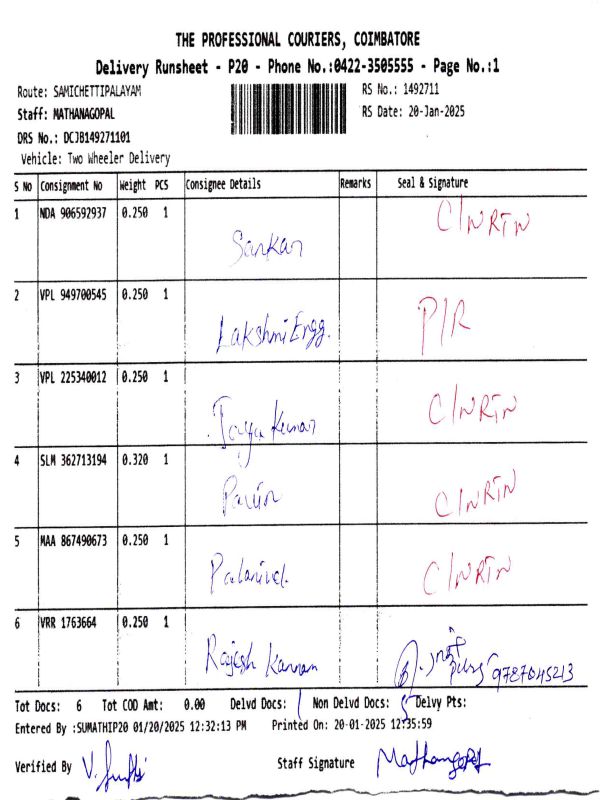 THE PROFESSIONAL COURIERS, COIMBATORE
Delivery Runsheet - P20 - Phone No.:0422-3505555 - Page No.:1
Route: SAMICHETTIPALAYAM
RS No.: 1492711
Staff: MATHANAGOPAL
RS Date: 20-Jan-2025
DRS No.: DCJB149271101
Vehicle: Two Wheeler Delivery
S No Consignment No Weight PCS Consignee Details Remarks Seal & Signature
1 NDA 906592937 0.250 1 Sankar C/NRTN
2 VPL 949700545 0.250 1 Lakshmi Engg. P/R
3 VPL 225340012 0.250 1 Kumar C/NRTN
4 SLM 362713194 0.320 1 C/NRTN
5 MAA 867490673 0.250 1 Palanivel. C/NRTN
6 VRR 1763664 0.250 1 Rajesh Kannan 9787045213
Tot Docs: 6 Tot COD Amt: 0.00 Delvd Docs: 1 Non Delvd Docs: 5 Delvy Pts:
Entered By :SUMATHIP20 01/20/2025 12:32:13 PM Printed On: 20-01-2025 12:35:59
Verified By
Staff Signature